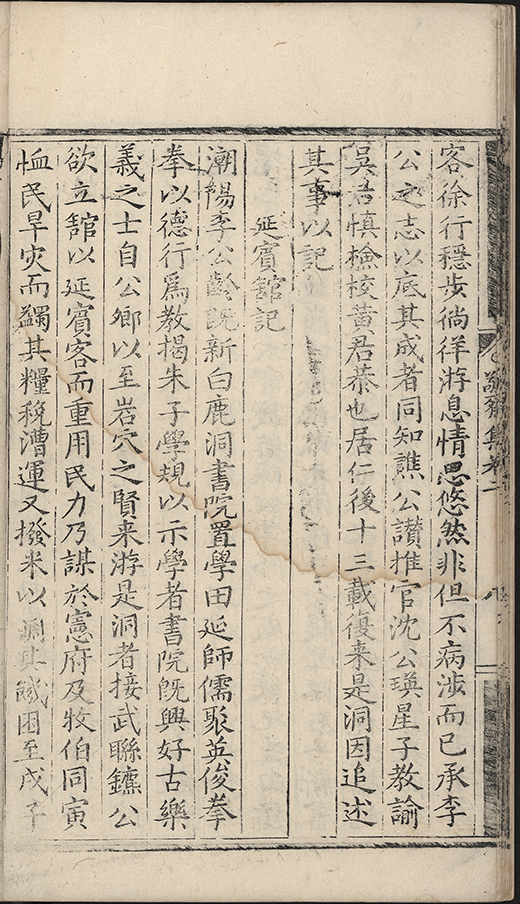 敬齋集卷二
客徐行穩步徜徉游息情思悠然非但不病涉而已承李
公之志以底其成者同知譙公讃推官沈公瑛星子教諭
吳君慎檢校黄君恭也居仁後十三載復来是洞因追述
其事以記
延賓舘記
潮陽李公齡旣新白鹿洞書院置學田延師儒聚英俊拳
拳以德行爲教揭朱子學規以示學者書院旣興好古樂
義之士自公卿以至岩穴之賢来游是洞者接武聯鑣公
欲立舘以延賓客而重用民力乃謀於憲府及牧伯同寅
恤民旱灾而蠲其糧稅漕運又撥米以赒其饑困至戊子